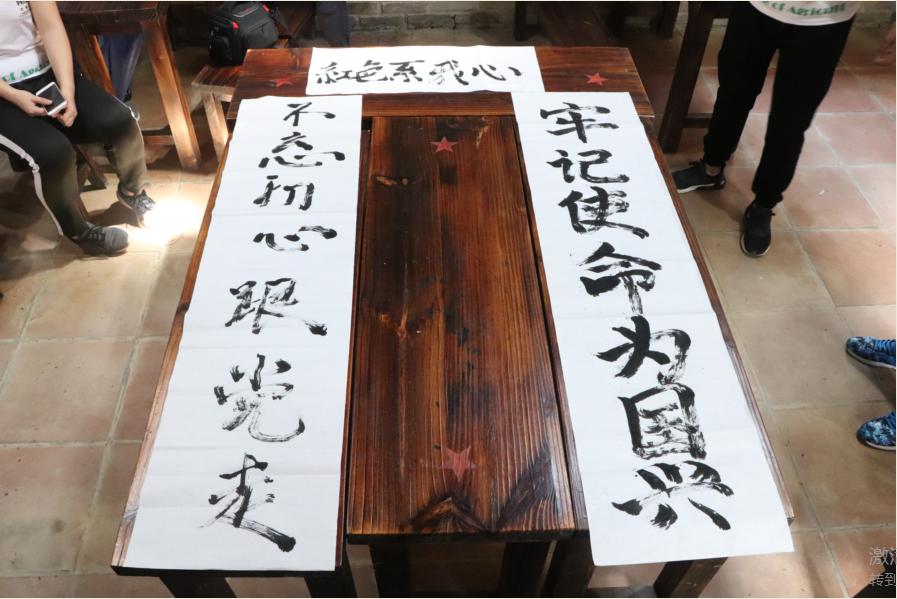 红色系我心
不忘初心跟党走
牢记使命为国兴
of Agricult
转到